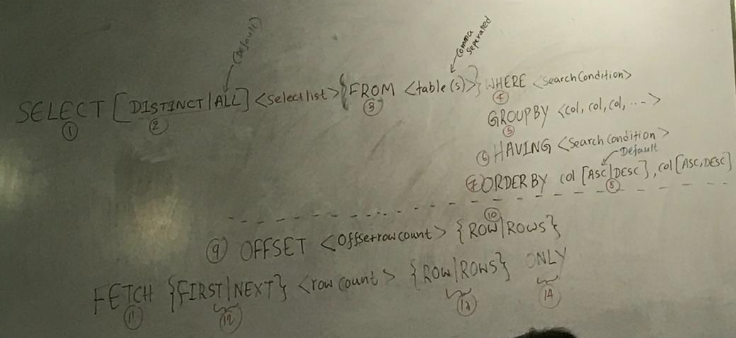 (Default)
Comma seperated
SELECT [DISTINCT|ALL] <selectlist> {FROM <table(s)>} WHERE <searchCondition>
① ② ③ ④
GROUPBY <col, col, col, ...->
⑤
⑥ HAVING <SearchCondition>
Default
⑦ ORDERBY col [ASC|DESC], col [ASC, DESC]
⑧
⑩
⑨ OFFSET <Offsetrowcount> {ROW|ROWS}
FETCH {FIRST|NEXT} <row count> {ROW|ROWS} ONLY
⑪ ⑫ ⑬ ⑭